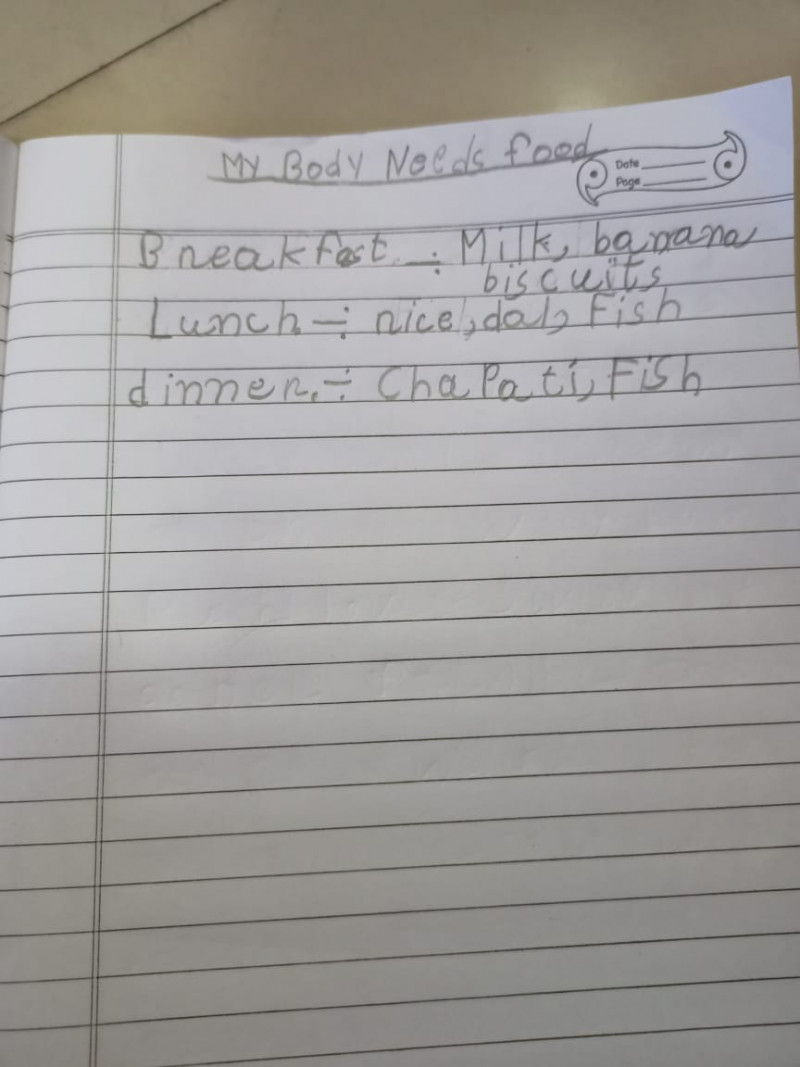 My Body Needs food
Date
Page
Breakfast :- Milk, banana
biscuits
Lunch :- rice, dal, Fish
dinner. :- ChaPati, FiSh